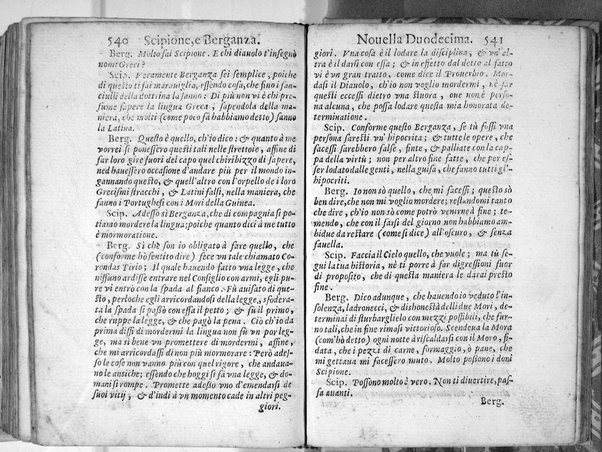 540 Scipione, e Berganza.
Berg. Molto sai Scipione. E chi diauolo t'insegnò
nomi Greci?
Scip. Veramente Berganza sei semplice, poiche
di questo ti fai marauiglia, essendo cosa, che fino i fan-
ciulli della dottrina la sanno: Di più non vi è chi pre-
sume sapere la lingua Greca, sapendola della ma-
niera, che molti (come poco fa habbiamo detto) sanno
la Latina.
Berg. Questo è quello, ch'io dico: & quanto à me
vorrei si ponessero questi tali nelle strettoie, affine di
far loro gire fuori del capo quel chiribizzo di sapere,
ned hauessero occasione d'andare più per il mondo in-
gannando questo, & quell'altro con l'orpello de i loro
Grecismi stracchi, & Latini falsi, nella maniera, che
fanno i Portughesi con i Mori della Guinea.
Scip. Adesso sì Berganza, che di compagnia si po-
tiamo mordere la lingua; poiche quanto dici à me tutto
è mormoratione.
Berg. Sì ché son io obligato à fare quello, che
(conforme hò sentito dire) fece vn tale chiamato Co-
rondas Tirio; Il quale hauendo fatto vna legge, che
nissuno ardisse entrare nel Consiglio con armi, egli pu-
re vi entrò con la spada al fianco. Fù auisato di que-
sto, perloche egli arricordandosi della legge, sfodera-
ta la spada si passò con essa il petto; & fù il primo,
che ruppe la legge, & che pagò la pena. Ciò ch'io da
prima dissi di mordermi la lingua non fù vn por leg-
ge, ma sì bene vn promettere di mordermi, affine,
che mi arricordassi di non più mormorare: Però ades-
so le cose non vanno più con quel rigore, che andaua-
no le antiche; essendo che hoggi si fà vna legge, & do-
mani si rompe. Promette adesso vno d'emendarsi de
suoi vitij, & d'indi à vn momento cade in altri peg-
giori.
Nouella Duodecima. 541
giori. Vna cosa è il lodare la disciplina, & vn'al-
tra è il darsi con essa; & in effetto dal detto al fatto
vi è vn gran tratto, come dice il Prouerbio. Mor-
dasi il Diauolo, ch'io non voglio mordermi, nè far
questi eccessi dietro vna stuora, oue non è per-
sona alcuna, che possa lodare questa mia honorata de-
terminatione.
Scip. Conforme questo Berganza, se tù fossi vna
persona saresti vn'hipocrita; & tutte le opere, che
facessi sarebbero false, finte, & palliate con la cap-
pa della virtù; non per altro fine fatte, che per es-
ser lodato dalle genti, nella guisa, che fanno tutti gl'-
hipocriti.
Berg. Io non sò quello, che mi facessi; questo sò
ben dire, che non mi voglio mordere; restandomi tanto
che dire, ch'io non sò come potrò venirne à fine; te-
mendo, che con il farsi del giorno non habbiamo am-
bidue da restare (come si dice) all'oscuro, & senza
fauella.
Scip. Faccia il Cielo quello, che vuole; ma tù se-
gui la tua historia, nè ti porre à far digressioni fuor
di proposito, che di questa maniera le darai presto
fine.
Berg. Dico adunque, che hauendo io veduto l'in-
solenza, ladronecci, & dishonestà delli due Mori, de-
terminai di sturbarglielo con mezzi possibili, che fur-
no tali, che in fine rimasi vittorioso. Scendeua la Mora
(com'hò detto) ogni notte à riscaldarsi con il Moro, fi-
data, che i pezzi di carne, formaggio, ò pane, che
mi gettaua mi facessero muto. Molto possono i doni
Scipione.
Scip. Possono molto è vero. Non ti diuertire, pas-
sa auanti.
Berg.